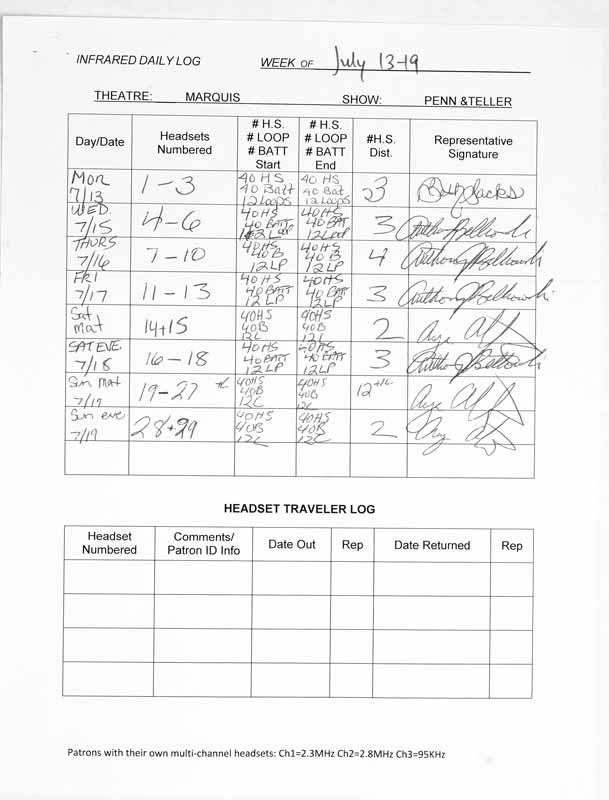 INFRARED DAILY LOG WEEK OF July 13-19
THEATRE: MARQUIS SHOW: PENN &TELLER
Day/Date Headsets Numbered # H.S. # LOOP # BATT Start # H.S. # LOOP # BATT End #H.S. Dist. Representative Signature
Mon 7/13 1-3 40 HS 40 Batt 12 Loops 40 HS 40 Bat. 12 Loops 3
WED. 7/15 4-6 40HS 40 BATT 12 Loop 40HS 40 BATT 12 Loop 3
THURS 7/16 7-10 40HS 40B 12LP 40HS 40B 12LP 4
FRI 7/17 11-13 40HS 40 BATT 12 LP 40HS 40 BATT 12 LP 3
Sat Mat 14+15 40HS 40B 12L 40HS 40B 12L 2
SAT EVE. 7/18 16-18 40HS 40BATT 12 LP 40HS 40 BATT 12 LP 3
Sun Mat 7/19 19-27 +IL 40HS 40B 12L 40HS 40B 12L 12+IL
Sun eve 7/19 28+29 40HS 40B 12L 40HS 40B 12L 2
HEADSET TRAVELER LOG
Headset Numbered Comments/ Patron ID Info Date Out Rep Date Returned Rep
Patrons with their own multi-channel headsets: Ch1=2.3MHz Ch2=2.8MHz Ch3=95KHz